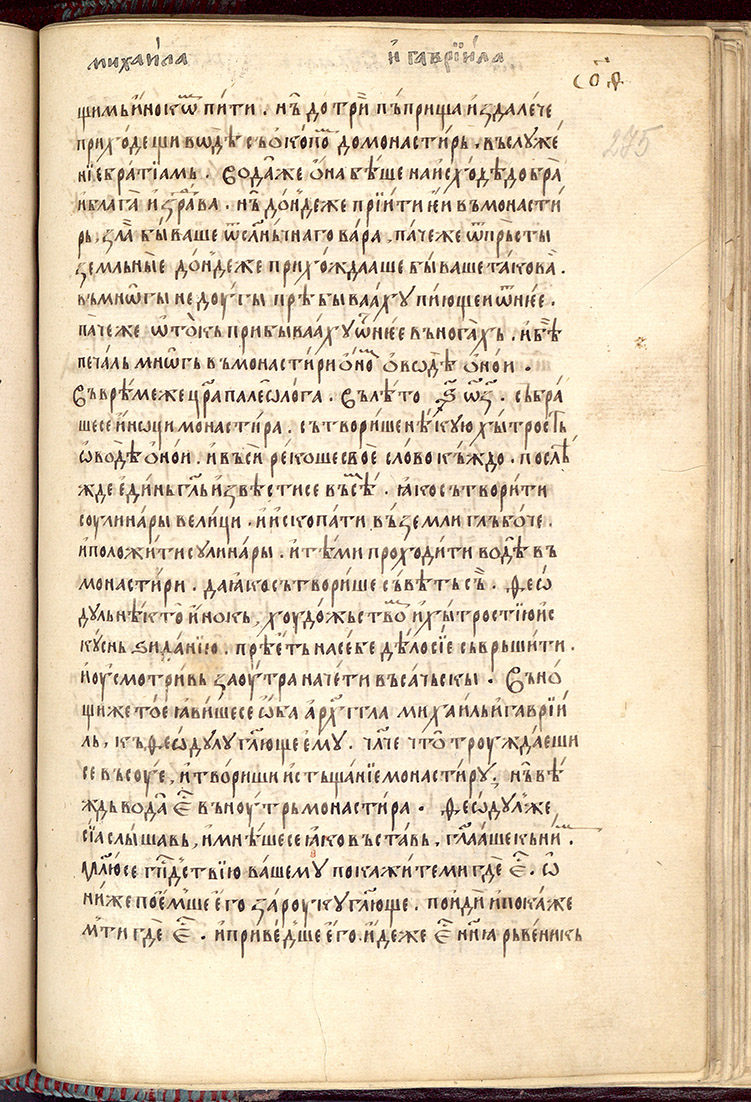 михаи́ла и҆ гаврїи́ла
со҃ѳ
275
щимь и҆нокѡⷨ пи́ти . нъ̀ до трї́и пъприща и҆здалече
приходещи вѡдѣ съ ѻ҆кѻпѡⷨ до монастирь . въ слꙋже́
нїе братїамь . Є҆ода̀же ѻ҆на бѣ́ше на и҆схо́дѣ добра̀
и҆ блага̀ и҆ здра́ва . нъ̀ до́ндеже прїи́ти є҆́и въ монасти́
рь , зла̀ бываше ѿ слн҃чнаго ва́ра , па́че же ѿ пръсты
земльные до́ндеже прихо́ждааше бываше такова̀ .
въ мнѡ́гы недоу́гы прѣбываахꙋ пи́ющеи ѿ нѥе .
па́че же ѡ҆то́къ прибываахꙋ ѿ нѥе въ нога́хь . и҆ бѣ̀
печа́ль мнѡгь въ монастири ѻ҆но́мⷨ ѻ҆ водѣ̀ ѻ҆нои .
Въ врѣ́ме же цр҃а палеѡлога . Въ лѣ́то ҂ѕ҃ ѡ҃ѻ҃з . събра́
шесе и҆ноци монасти́ра . сътвори́ше нѣ́кꙋю хы́трость
ѡ҆ водѣ̀ ѻ҆нои . и҆ въси́ реко́ше своѐ сло́во къждо . послѣ́
жде є҆ди́нь гл҃ь и҆звѣ́стисе въсѣⷨ . ꙗ҆ко сътвори́ти
соулина́ры вели́ци . и҆ и҆скопа́ти въ земли глꙋбоче .
и҆ положи́ти сꙋлина́ры . и҆ тѣ́ми проходи́ти водѣ̀ въ
монасти́ри . да ꙗ҆ко сътвори́ше съвѣ́ть съ̀ . Ѳеѡ́
дꙋль нѣ́кто и҆́нокь , хоудо́жьствоⷨ и҆ хы́тростїю и҆с
кꙋ́снь ѕида́нїю . прїе́ть на се́бе дѣ́ло сїѐ съврьши́ти .
и҆ оу҆смотри́вь заоу́тра наче́ти въса́чьскы . Въ но́
щи же то́е ꙗ҆ви́шесе ѡ҆́ба а҆рхг҃гла михаи́ль и҆ гаврїи́
ль , къ ѳеѡ́дꙋлꙋ гл҃юще є҆мꙋ . чл҃че что̀ троужда́еши
се въ соуе , и҆ твори́ши и҆стъща́нїе монасти́рꙋ . нъ̀ вѣ́
ждь вода̀ є҆ⷭ҇ въноу́трь монасти́ра . Ѳеѡ́дꙋл же
сїа̀ слы́шавь , и҆ мнѣ́шесе ꙗ҆ко въста́вь , гл҃а́аше къ ни́мⷨ .
мл҃ю́се гпⷭ҇дствїю ва́шемꙋ покажи́те ми гдѐ є҆ⷭ҇ . ѡ҆
ни́ же пое́мше є҆го̀ за роукꙋ гл҃юще . пои́ди и҆ пока́же
мти гдѐ є҆ⷭ҇ . и҆ приве́дше є҆го . и҆́деже є҆ⷭ҇ нн҃ꙗ рьвени́кь